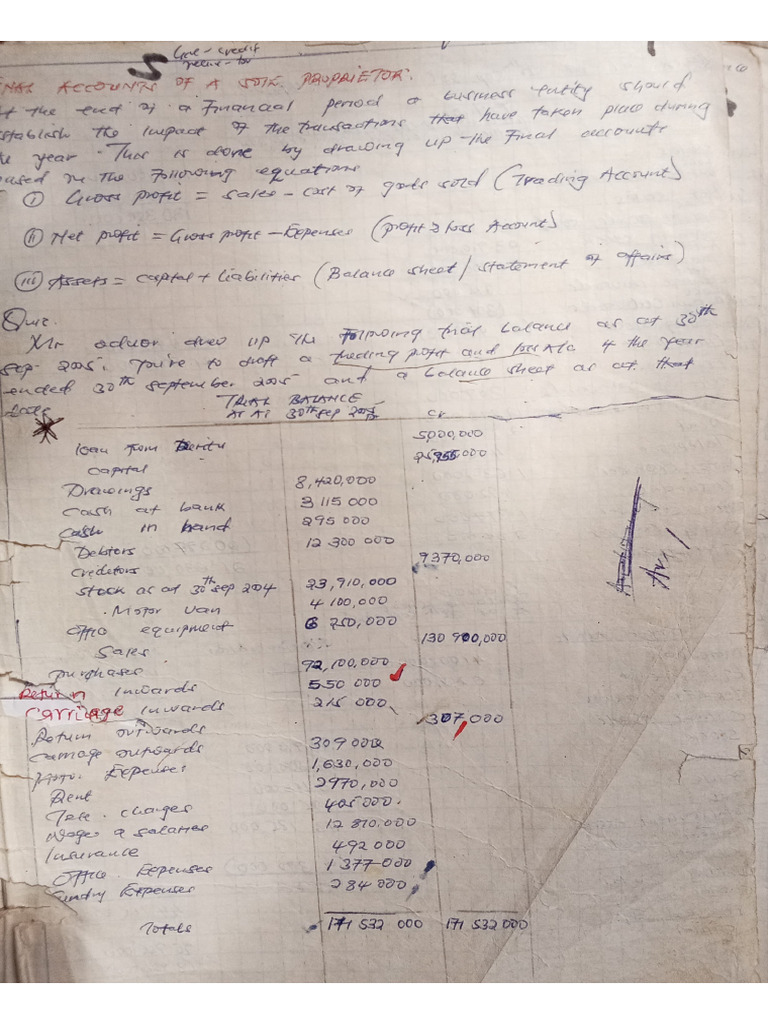 Give - credit
receive - Dr
S
FINAL ACCOUNTS OF A SOLE PROPRIETOR.
At the end of a Financial period a business entity should
establish the impact of the transactions that have taken place during
the year. This is done by drawing up the final accounts
based on the following equations
(i) Gross profit = Sales - cost of goods sold (Trading Account)
(ii) Net profit = Gross profit - Expenses (profit & loss Account)
(iii) Assets = capital + liabilities (Balance sheet / statement of affairs)
Quiz.
Mr drew up the Following trial balance as at 30th
sep 2005. You're to draft a trading profit and loss A/c 4 the year
ended 30th september 2005 and a balance sheet as at that
date
TRIAL BALANCE
AS AT 30th sep 2005
Cr
loan from 5000,000
capital 25,955,000
Drawings 8,420,000
Cash at bank 3 115 000
Cash in hand 295 000
Debtors 12 300 000
Creditors 9370,000
Stock as at 30th sep 2004 23,910,000
Motor van 4 100,000
office equipment 6 250,000
Sales 130 900,000
purchases 92,100,000
Return inwards 550 000
Carriage inwards 215 000
Return outwards 307,000
Carriage outwards 309 000
Motor Expenses 1,630,000
Rent 2970,000
Tele. charges 405 000
Wages & salaries 12 810,000
Insurance 492 000
Office Expenses 1 377 000
Sundry Expenses 284 000
Totals 171 532 000 171 532 000